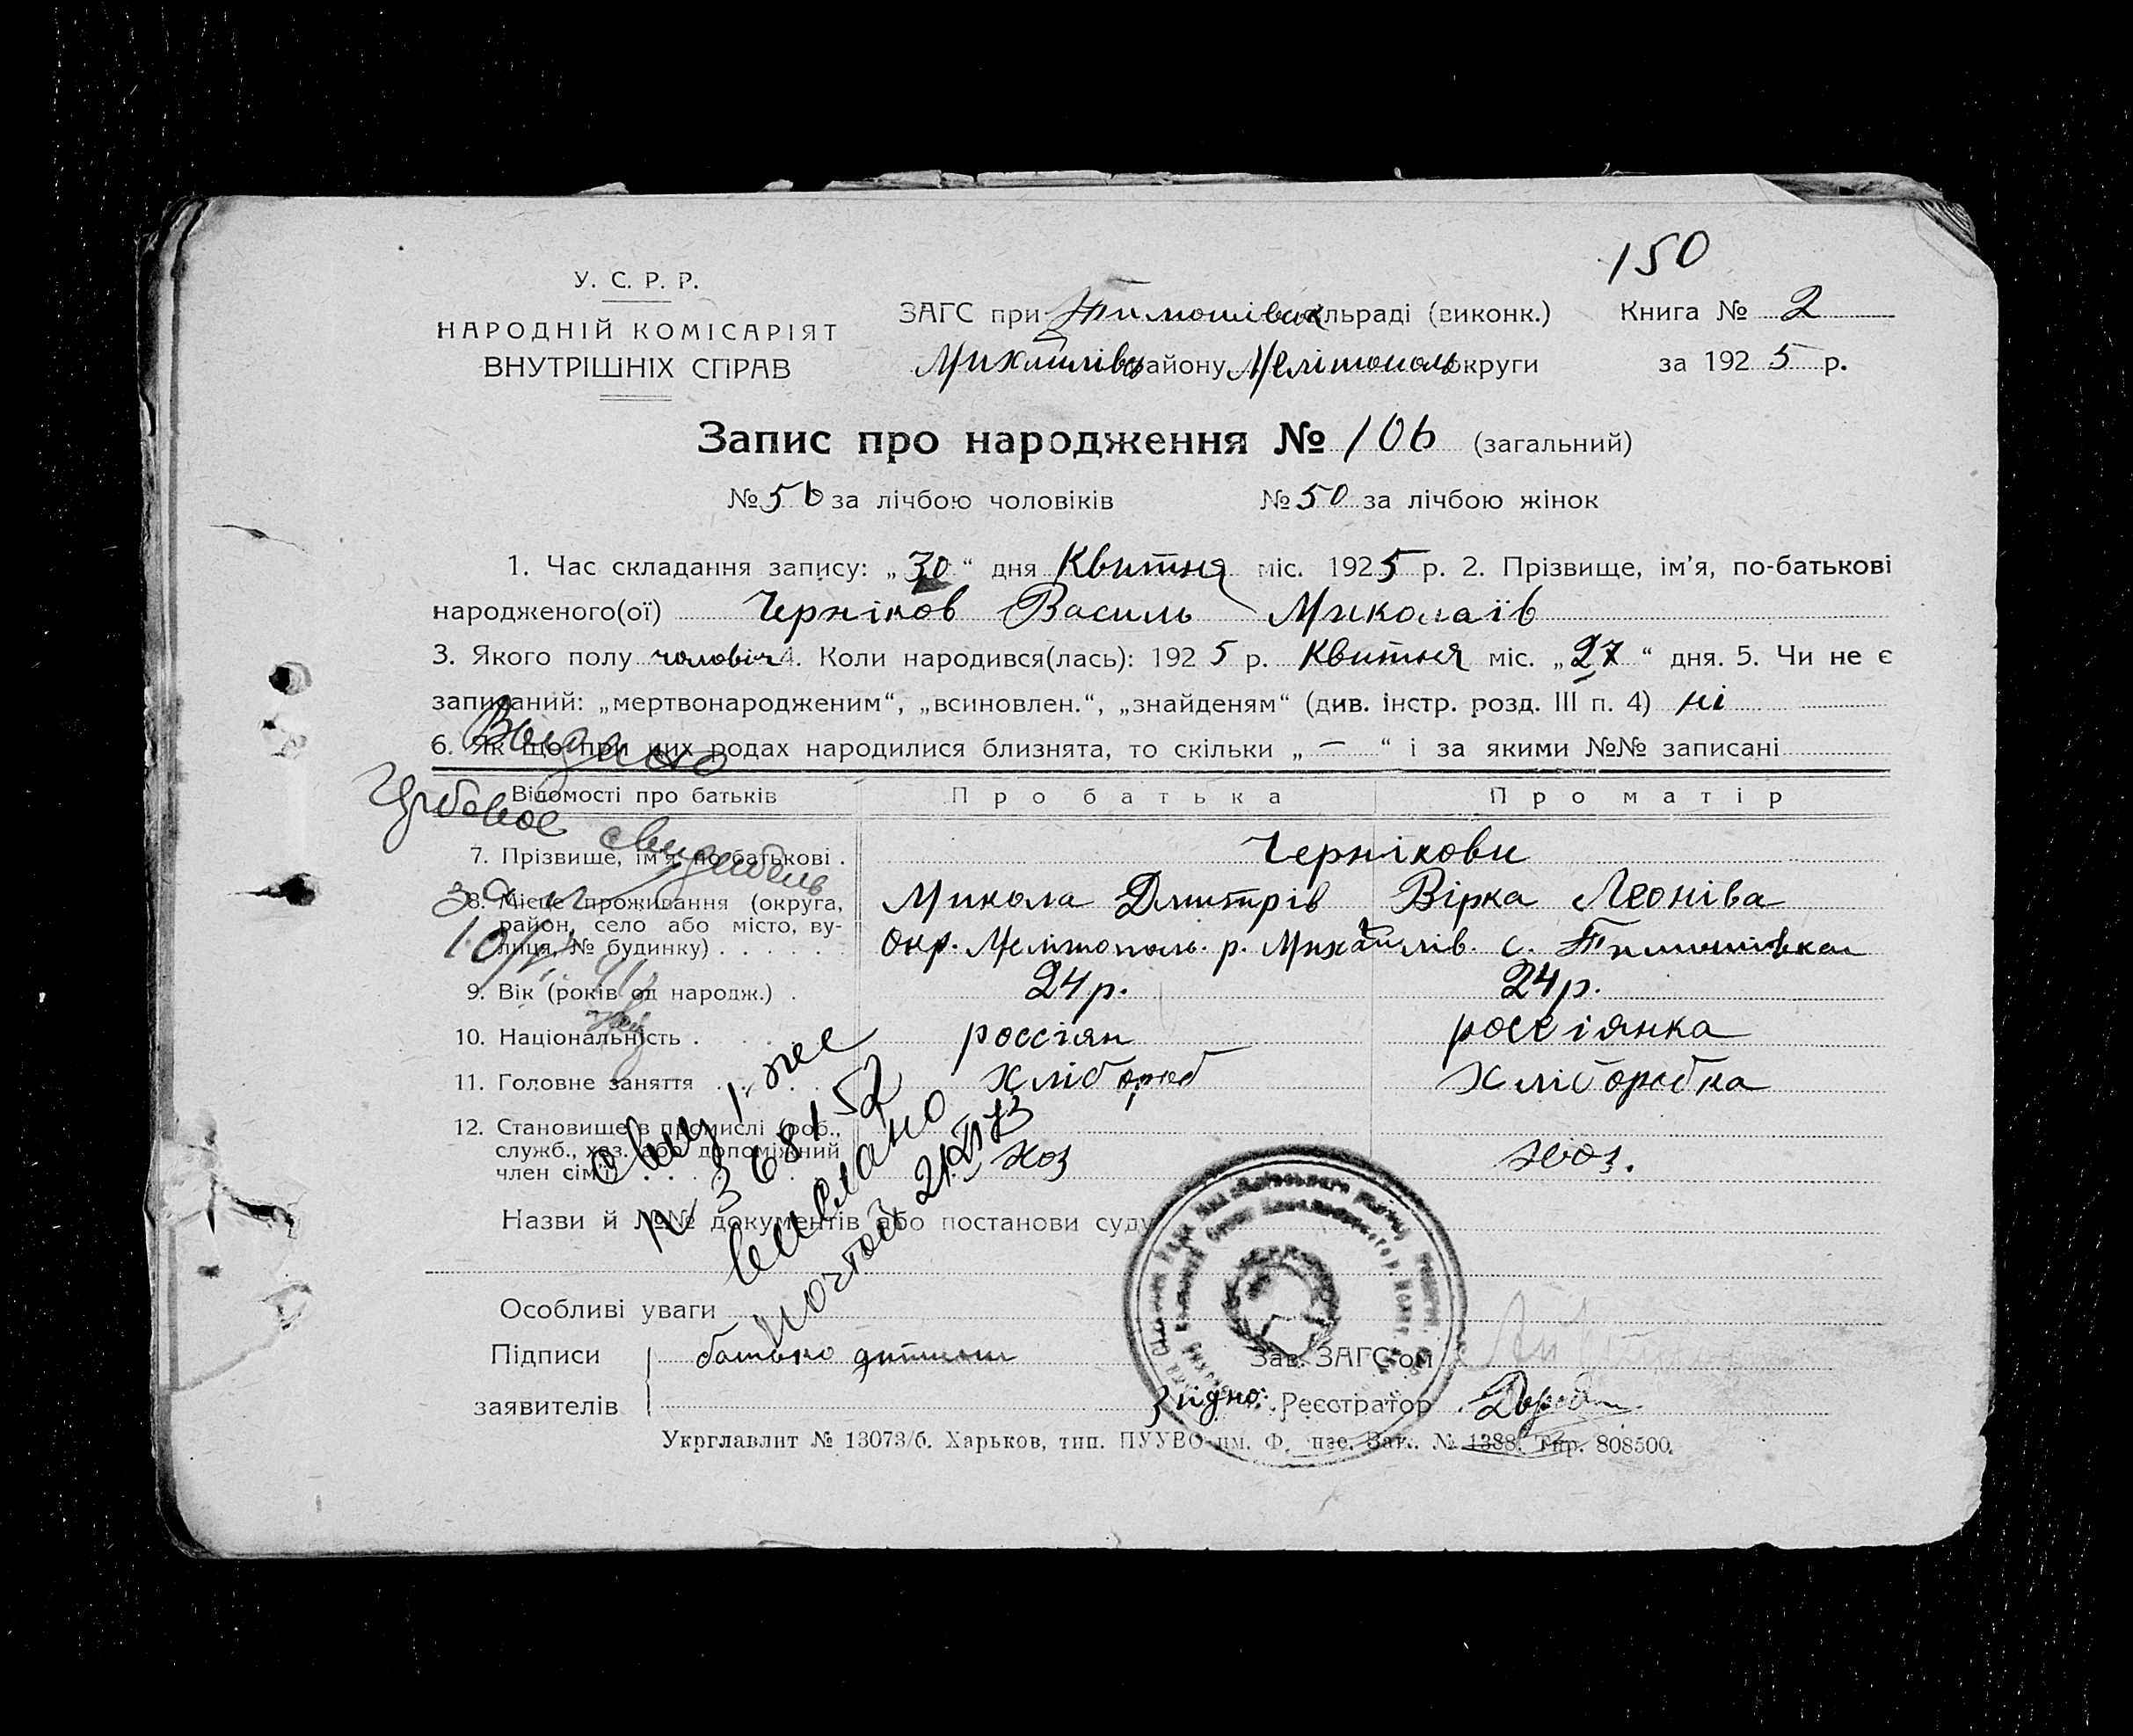 150
У. С. Р. Р.
НАРОДНІЙ КОМІСАРІЯТ
ВНУТРІШНІХ СПРАВ
ЗАГС при Тимошівск льраді (виконк.)
Михайлівс айону Мелітополь округи
Книга № 2
за 1925 р.
Запис про народження № 106 (загальний)
№ 56 за лічбою чоловіків № 50 за лічбою жінок
1. Час складання запису: „30“ дня Квитня міс. 1925 р. 2. Прізвище, ім’я, по-батькові
народженого(ої) Черніков Василь Миколаїв
3. Якого полу чоловіч 4. Коли народився(лась): 1925 р. Квитня міс. „27“ дня. 5. Чи не є
записаний: „мертвонародженим“, „всиновлен.“, „знайденям“ (див. інстр. розд. III п. 4) ні
6. Як що при цих родах народилися близнята, то скільки „—“ і за якими №№ записані
Відомості про батьків Про батька Про матір
7. Прізвище, ім’я, по-батькові . Чернікови
Микола Дмитрів Вірка Леонівa
8. Місце проживання (округа,
район, село або місто, ву-
лиця, № будинку) . . . . . . Окр. Мелітополь. р. Михайлів. с. Тимошівка
9. Вік (років од народж.) . 24 р. 24 р.
10. Національність . россіян россіянка
11. Головне заняття хлібороб хліборобка
12. Становище в промислі (роб.,
служб., хаз. або допоміжний
член сім’ї) хоз хоз.
Назви й №№ документів або постанови суду
Особливі уваги
Підписи батько дитини Зав. ЗАГС’ом
заявителів Згідно: Реєстратор
Укрглавлит № 13073/б. Харьков, тип. ПУУВО им. Ф. Зак. № 1388. Тир. 808500.
Выдано
свидетель
№ 368152
выслано
почтой 21.